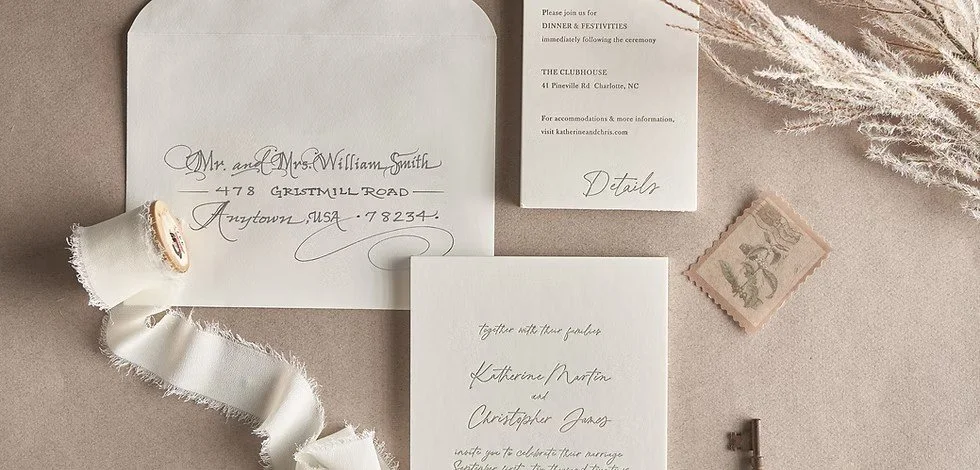 Mr. and Mrs. William Smith
478 GRISTMILL ROAD
Anytown, USA · 78234.
Please join us for
DINNER & FESTIVITIES
immediately following the ceremony
THE CLUBHOUSE
41 Pineville Rd Charlotte, NC
For accommodations & more information,
visit katherineandchris.com
Details
together with their families
Katherine Martin
and
Christopher James
invite you to celebrate their marriage